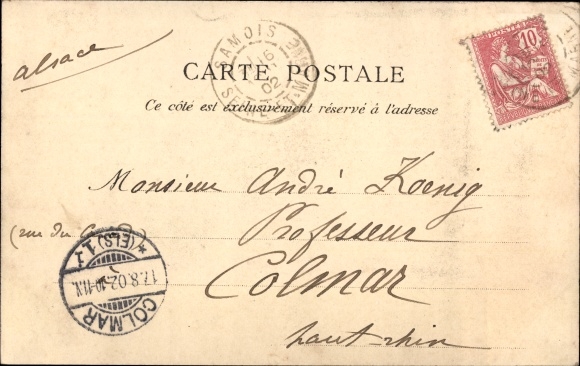 alsace
SAMOIS
16
02
SNE-ET-M
10
CARTE POSTALE
Ce côté est exclusivement réservé à l'adresse
Monsieur André Koenig
(rue du
Professeur
Colmar
haut-rhin
* (ELS) 1 *
17.8.02. 10-11 N.
COLMAR